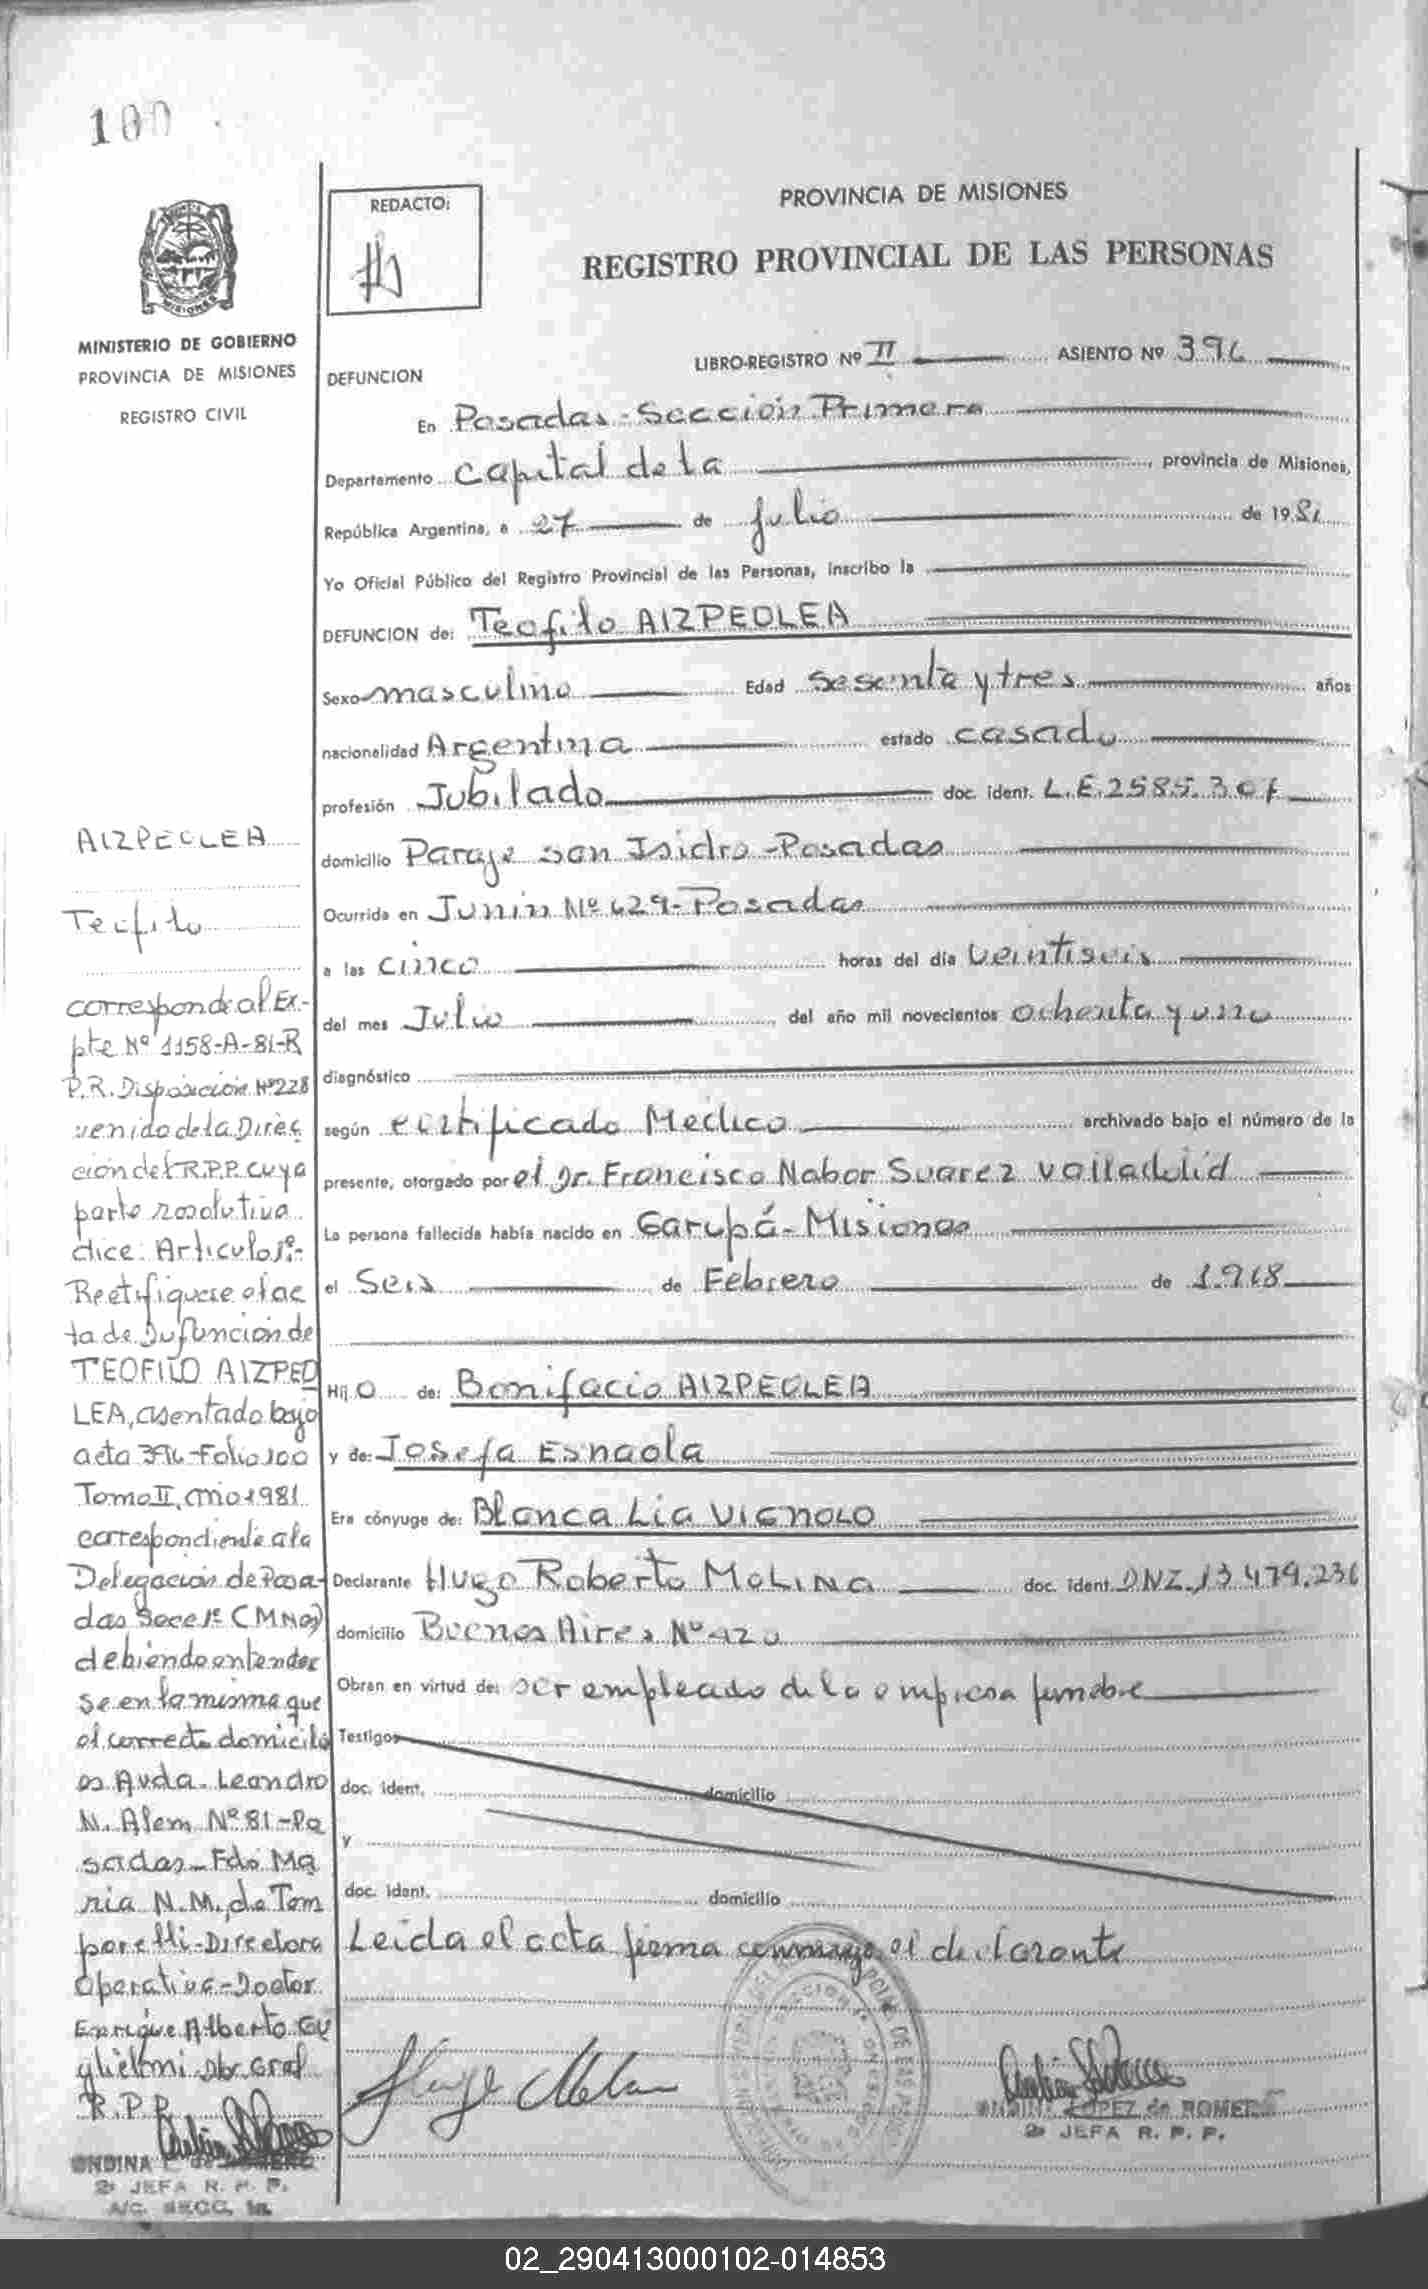 100
REDACTO:
PROVINCIA DE MISIONES
REGISTRO PROVINCIAL DE LAS PERSONAS
MISIONES
MINISTERIO DE GOBIERNO
PROVINCIA DE MISIONES
REGISTRO CIVIL
LIBRO-REGISTRO Nº II ASIENTO Nº 396
DEFUNCION
En Posadas-Sección Primera
Departamento Capital de la , provincia de Misiones,
República Argentina, a 27 de Julio de 1981
Yo Oficial Público del Registro Provincial de las Personas, inscribo la
DEFUNCION de: Teofilo AIZPEOLEA
Sexo masculino Edad sesenta y tres años
nacionalidad Argentina estado casado
profesión Jubilado doc. ident. L.E. 2585.307
domicilio Paraje San Isidro-Posadas
Ocurrida en Junin Nº 629-Posadas
a las cinco horas del día veintiseis
del mes Julio del año mil novecientos ochenta y uno
diagnóstico
según certificado Medico archivado bajo el número de la
presente, otorgado por el Dr. Francisco Nabor Suarez Valladolid
La persona fallecida había nacido en Garupá-Misiones
el Seis de Febrero de 1.918
Hijo de: Bonifacio AIZPEOLEA
y de: Josefa Esnaola
Era cónyuge de: Blanca Lia VIGNOLO
Declarante Hugo Roberto MOLINA doc. ident. DNI. 13.479.236
domicilio Buenos Aires Nº 420
Obran en virtud de: ser empleado de la empresa funebre
Testigos
doc. ident. domicilio
y
doc. ident. domicilio
Leida el acta firma conmigo el declarante
LOPEZ de ROMERO
2a JEFA R. P. P.
AIZPEOLEA
Teofilo
corresponde al Ex-
pte Nº 1158-A-81-R
P.R. Disposición Nº 228
venido de la Direc
ción del R.P.P. cuya
parte resolutiva
dice: Articulo 1º:-
Rectifiquese el ac
ta de Defuncion de
TEOFILO AIZPEO
LEA, asentado bajo
acta 396-Folio 100
Tomo II, año 1981
correspondiente a la
Delegación de Posa-
das Secc 1º (Mnes)
debiendo entender
se en la misma que
el correcto domicilio
es Avda. Leandro
N. Alem Nº 81-Po
sadas-Fdo Ma
ria N.M. de Tom
parelli-Directora
Operativa-Doctor
Enrique Alberto Gu
glielmi Dtor Gral
R.P.P.
ONDINA L. de ROMERO
2a JEFA R. P. P.
A/C. SECC. 1a.
02_290413000102-014853